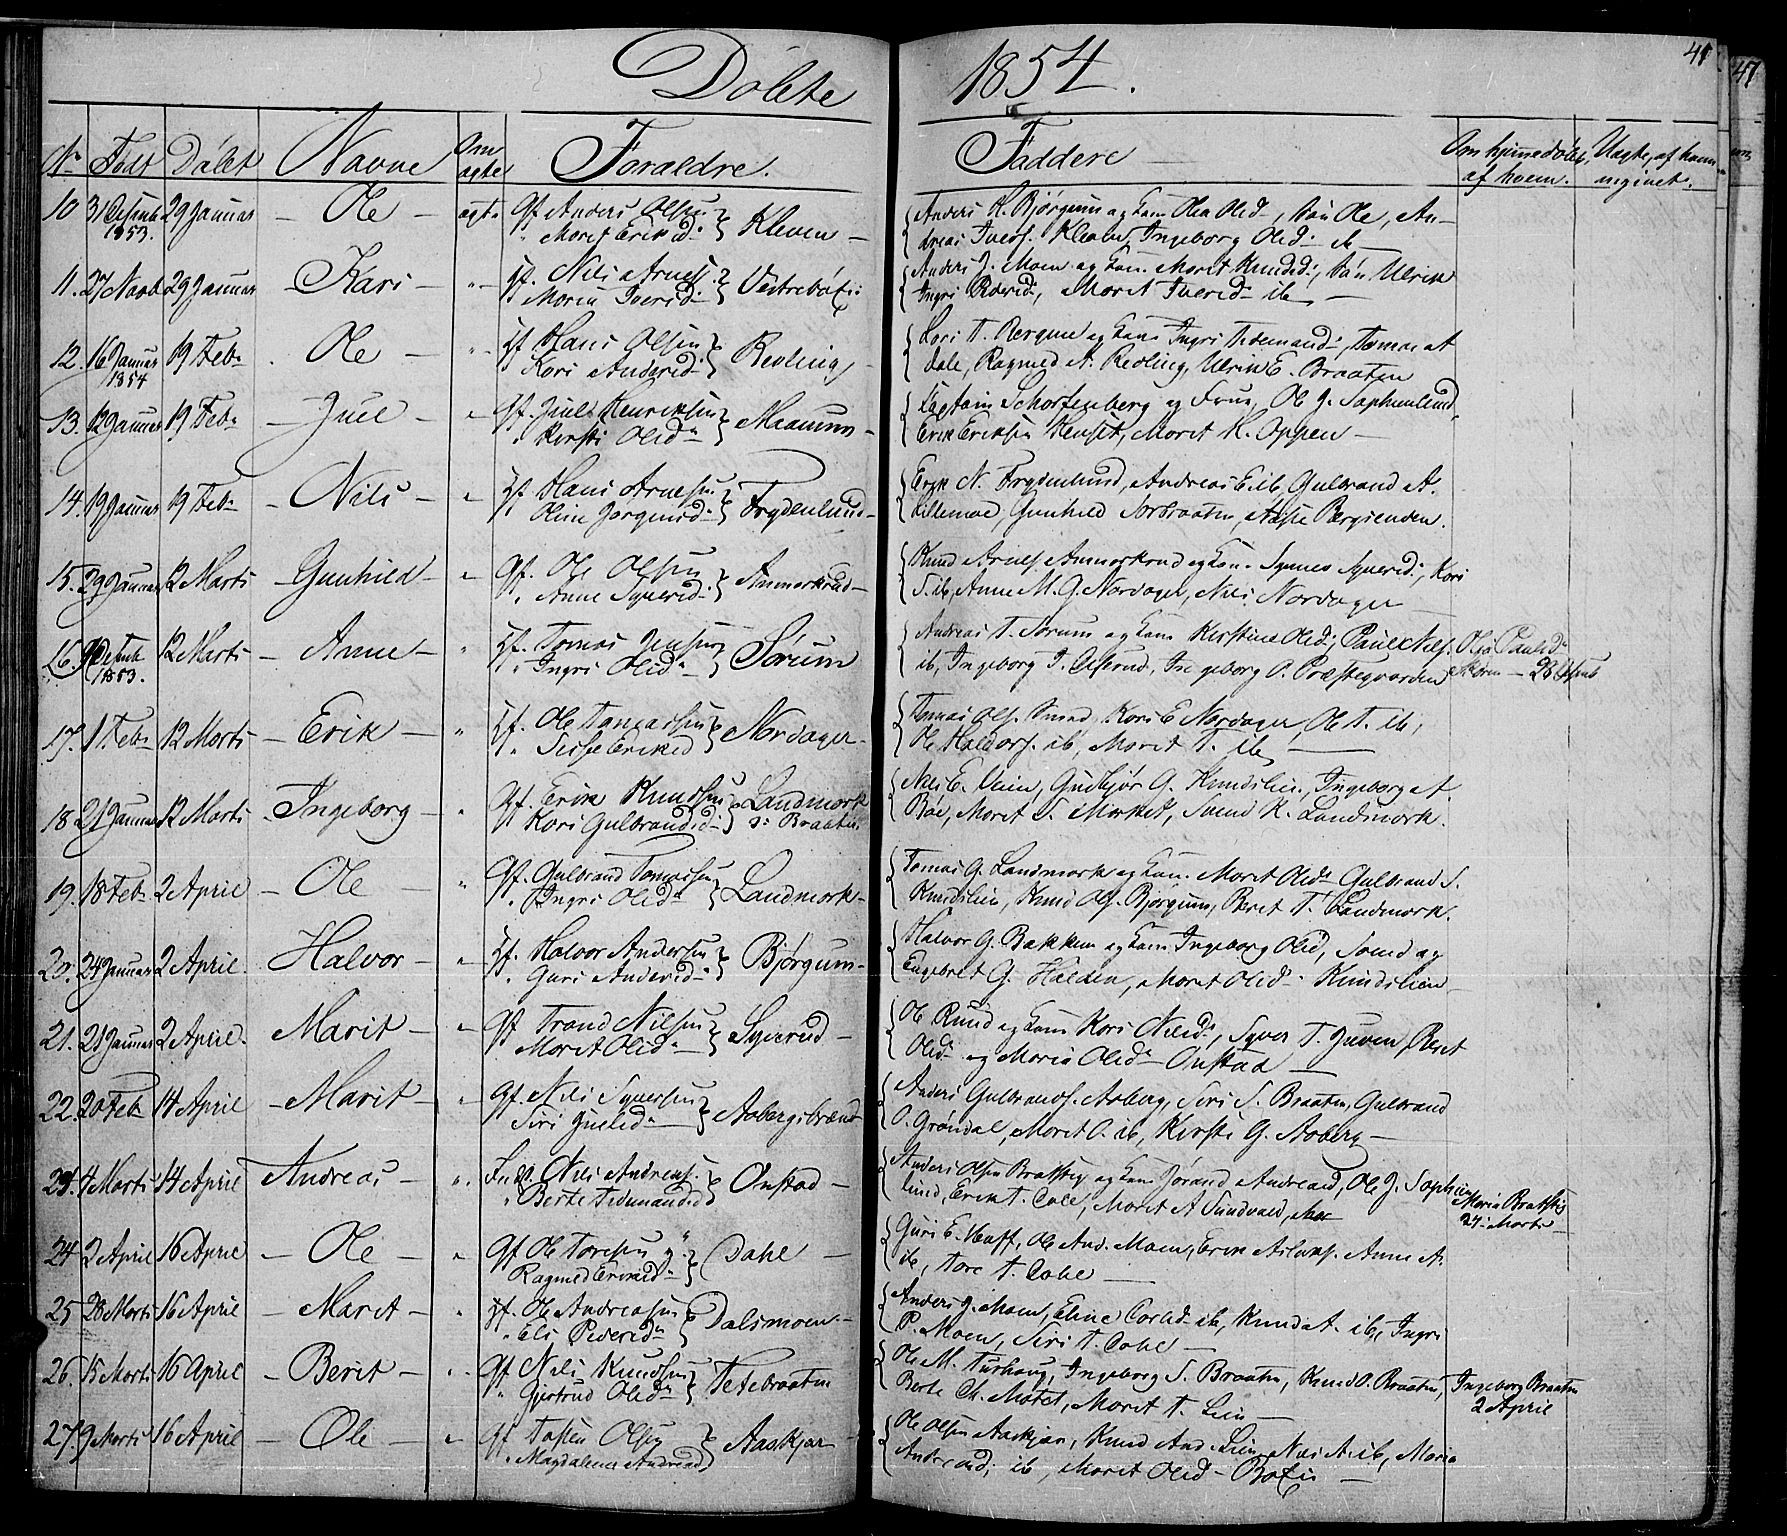 Døbte 1854.
41
47
No Født Døbt Navne Om ægte Forældre. Faddere Om hjemmedøbt, af hvem. Uægte, af hvem angivet.
10 31 Desemb 1853. 29 Januar - Ole - ægte Gf Anders Olsen
" Marit Eriksd: Kleven -
Anders H. Bjørgum og Kone Olea Olsd:, Søn Ole, An-
dreas Iverss. Kleven, Ingeborg Olsd: ib -
11. 27 Novb 29 Januar - Kari - " Nils Arness.
Maria Iversd:
Anders J. Moen og Kone Marit Knudsd:, Søn Ulrik
Ingri Iversd, Marit Iversd ib -
12. 16 Januar 1854 19 Feb: Ole - " Hans Olsen
Kari Andersd: Redling
Ingri Tidemandsd:, Tomas
Dale, Ragned A. Redling, Ulrik E. Braaten
13. 12 Januar 19 Feb: Juel - " Gf. Juel Henriksen
" Kirsti Olsd: Maanum -
Captain Schorfenberg og Frue, Ole J. Sophienlund,
Erik Eriksen Henset, Marit K. Oppen -
14. 19 Januar 19 Feb: - Nils - " Hans Arnesen
Oline Jørgensd: Frydenlund -
Erik N. Frydenlund, Andreas E. ib, Gulbrand A.
Lillemoe, Gunhild Sørbraaten, Bergsenden.
15. 29 Januar 12 Marts - Gunhild - " Gf. Ole Olsen
" Anne Syversd: Anmarkrud -
Knud Arness Anmarkrud og Kone Synnev Syversd:, Kari
S. ib, Anne M. G. Nordager, Nils Nordager
16. Desemb 1853. 12 Marts - Anne - " Tomas Jensen
" Ingri Olsd: Sørum
Andreas T. Sørum og Kone Kirstine Olsd:, Paul Nils.
ib, Ingeborg J. , Ingeborg O. Præstegaarden
Olia Paulsd:
Skøien - 28 Desemb
17. 1 Feb: 12 Marts - Erik - " Ole Tomassen
" Eriksd Nordager -
Tomas Ols. Smed, Kari E. Nordager, Ole T. ib,
Ole Haldors. ib, Marit T. ib -
18 21 Januar 12 Marts - Ingeborg - " Gf. Erik Knudsen
Kari Gulbrandsd: Landmark
s: Braaten
Nils E. Lien, Gudbjør G. Knudslien, Ingeborg A.
Bøe, Marit S. Morket, Svend K. Landmark.
19. 18 Feb: 2 April - Ole - " Gf. Gulbrand Tomassen
" Ingri Olsd: Landmork -
Tomas G. Landmork og Kone Marit Olsd: Gulbrand S.
Knudslien, Knud Ols. Bjørgum, Beret T. Landmork.
20. 24 Januar 2 April. Halvor - " Halvor Andersen
" Guri Andersd: Bjørgum -
Halvor G. Bakken og Kone Ingeborg Olsd, Svend og
Engebret G. Halden, Marit Olsd: Knudslien -
21. 28 Januar 2 April. Marit - " Gf Trond Nilsen
Marit Olsd: Syverud -
Ole Ruud og Kone Kari Nilsd:, Syver T. Juven, Beret
Olsd: og Maria Olsd: Onstad -
22. 20 Feb 14 April - Marit - " Gf. Nils Syversen
Siri Juelsd: Aabergsbrænd
Anders Gulbrands. Aaberg, Siri S. Braaten, Gulbrand
O. Grøndal, Marit O. ib, Kirsti G. Aaberg -
23. 4 Marts 14 April Andreas - " Nils Andreass.
" Berte Tidemandsd Onstad -
Anders Olsen Brattstig og Kone Jørand Andreasd, Ole J. Sophien
lund, Erik T. Dale, Marit A Sundvold,
Maria Brattstig
24: Marts
24 2 April 16 April - Ole - " Gf Ole Toresen y:
Ragned Eriksd: Dahl -
Guri E. Haff, Ole And. Moen, Erik Aslaks. Anne A.
ib, Tore T. Dahl -
25 28 Marts 16 April - Marit - " Ole Andreasen
" Eli Pedersd: Dalsmoen -
Anders J. Moen, Eline Carlsd: ib, Knud A. ib, Ingri
P. Moen, Siri T. Dahl -
26. 15 Marts 16 April - Berit - " Gf Nils Knudsen
" Gjertrud Olsd: Tetebraaten
Ole M. Turhaug, Ingeborg S. Braaten, Knud O. Braaten,
Berte Ch. Motet, Marit T. Lien -
Ingeborg Braaten
2 April
27. 9 Marts 16 April - Ole - " Gf Tosten Olsen
" Magdalena Andreasd Aaskjær -
Ole Olsen Aaskjær, Knud And. Lien, Nils A. ib, Maria
Andreasd: ib, Marit Olsd - -